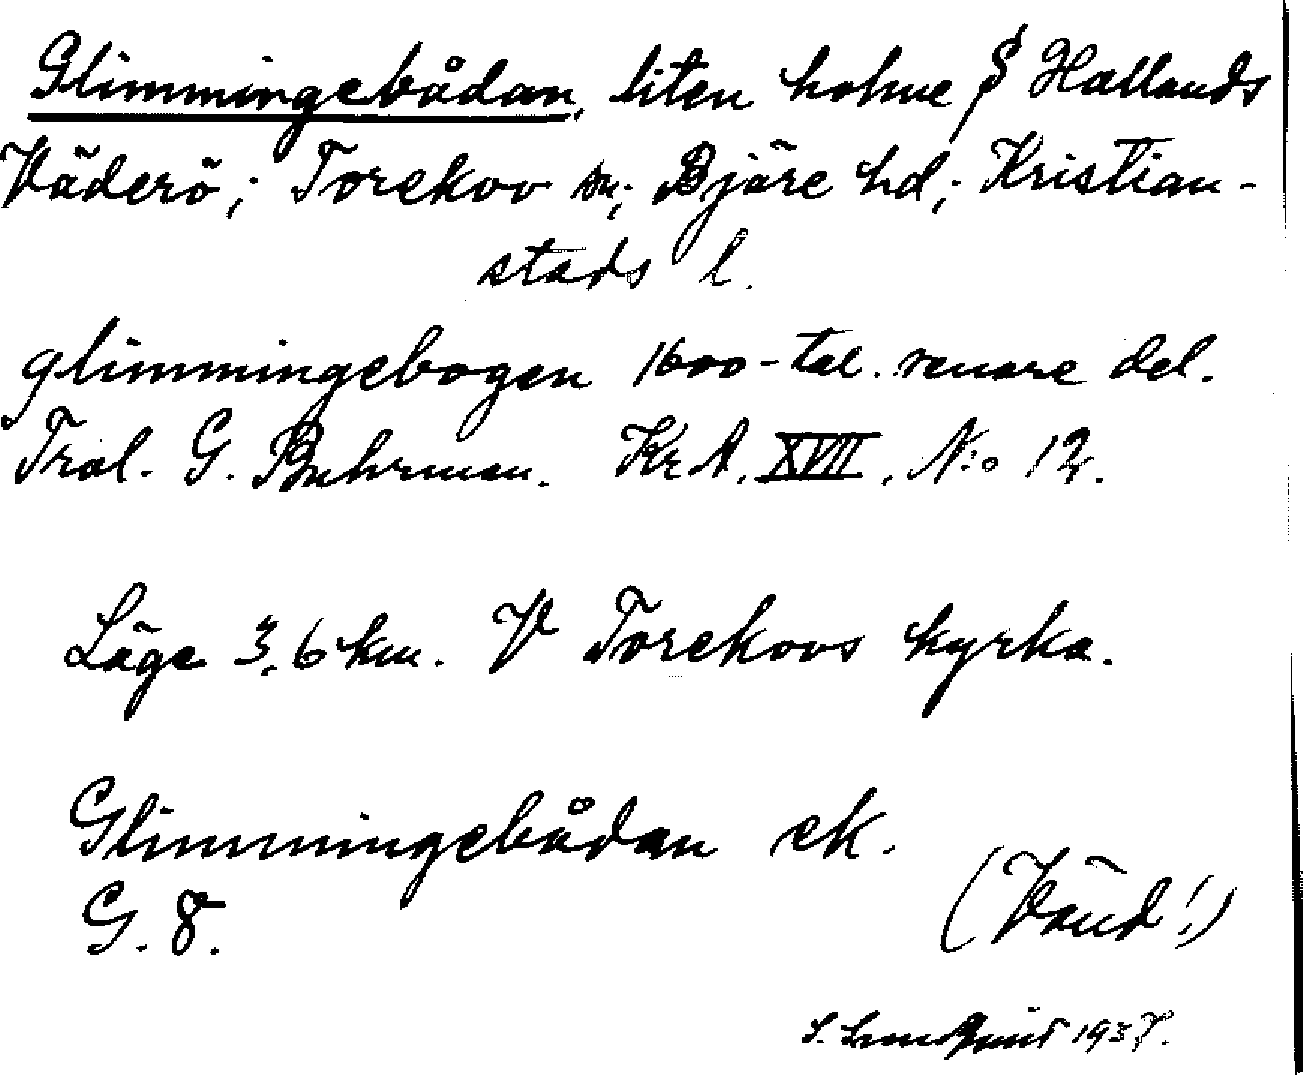 Glimmingebådan, liten holme S Hallands
Väderö; Torekov sn; Bjäre hd; Kristian-
stads l.
glimmingebogen 1600-tal. senare del.
Trol. G. Buhrman. KrA. XVII. N:o 12.
Läge 3,6 km. V Torekovs kyrka.
Glimmingebådan ek.
G. 8.
(Vänd!)
S. Lundquist 1937.